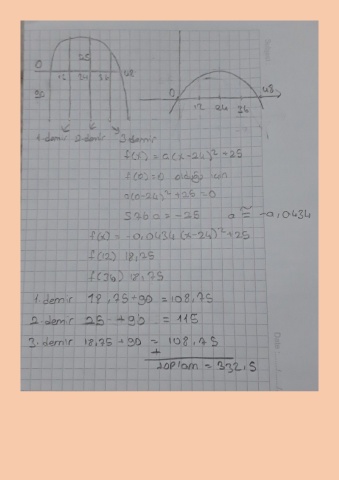 0 12 24 36 48
25
90
0 12 24 36 48
1. demir 2. demir 3. demir
f(x) = a(x-24)² +25
f(0)=0
=(0-24)² +25 =0
576a = -25 a ≅ -0,0434
f(x) = -0,0434 (x-24)² +25
f(12) 18,75
f(36) 18,75
1. demir 18,75+90 =108,75
2. demir 25 +90 = 115
3. demir 18,75 +90 = 108,75
+
toplam = 332,5